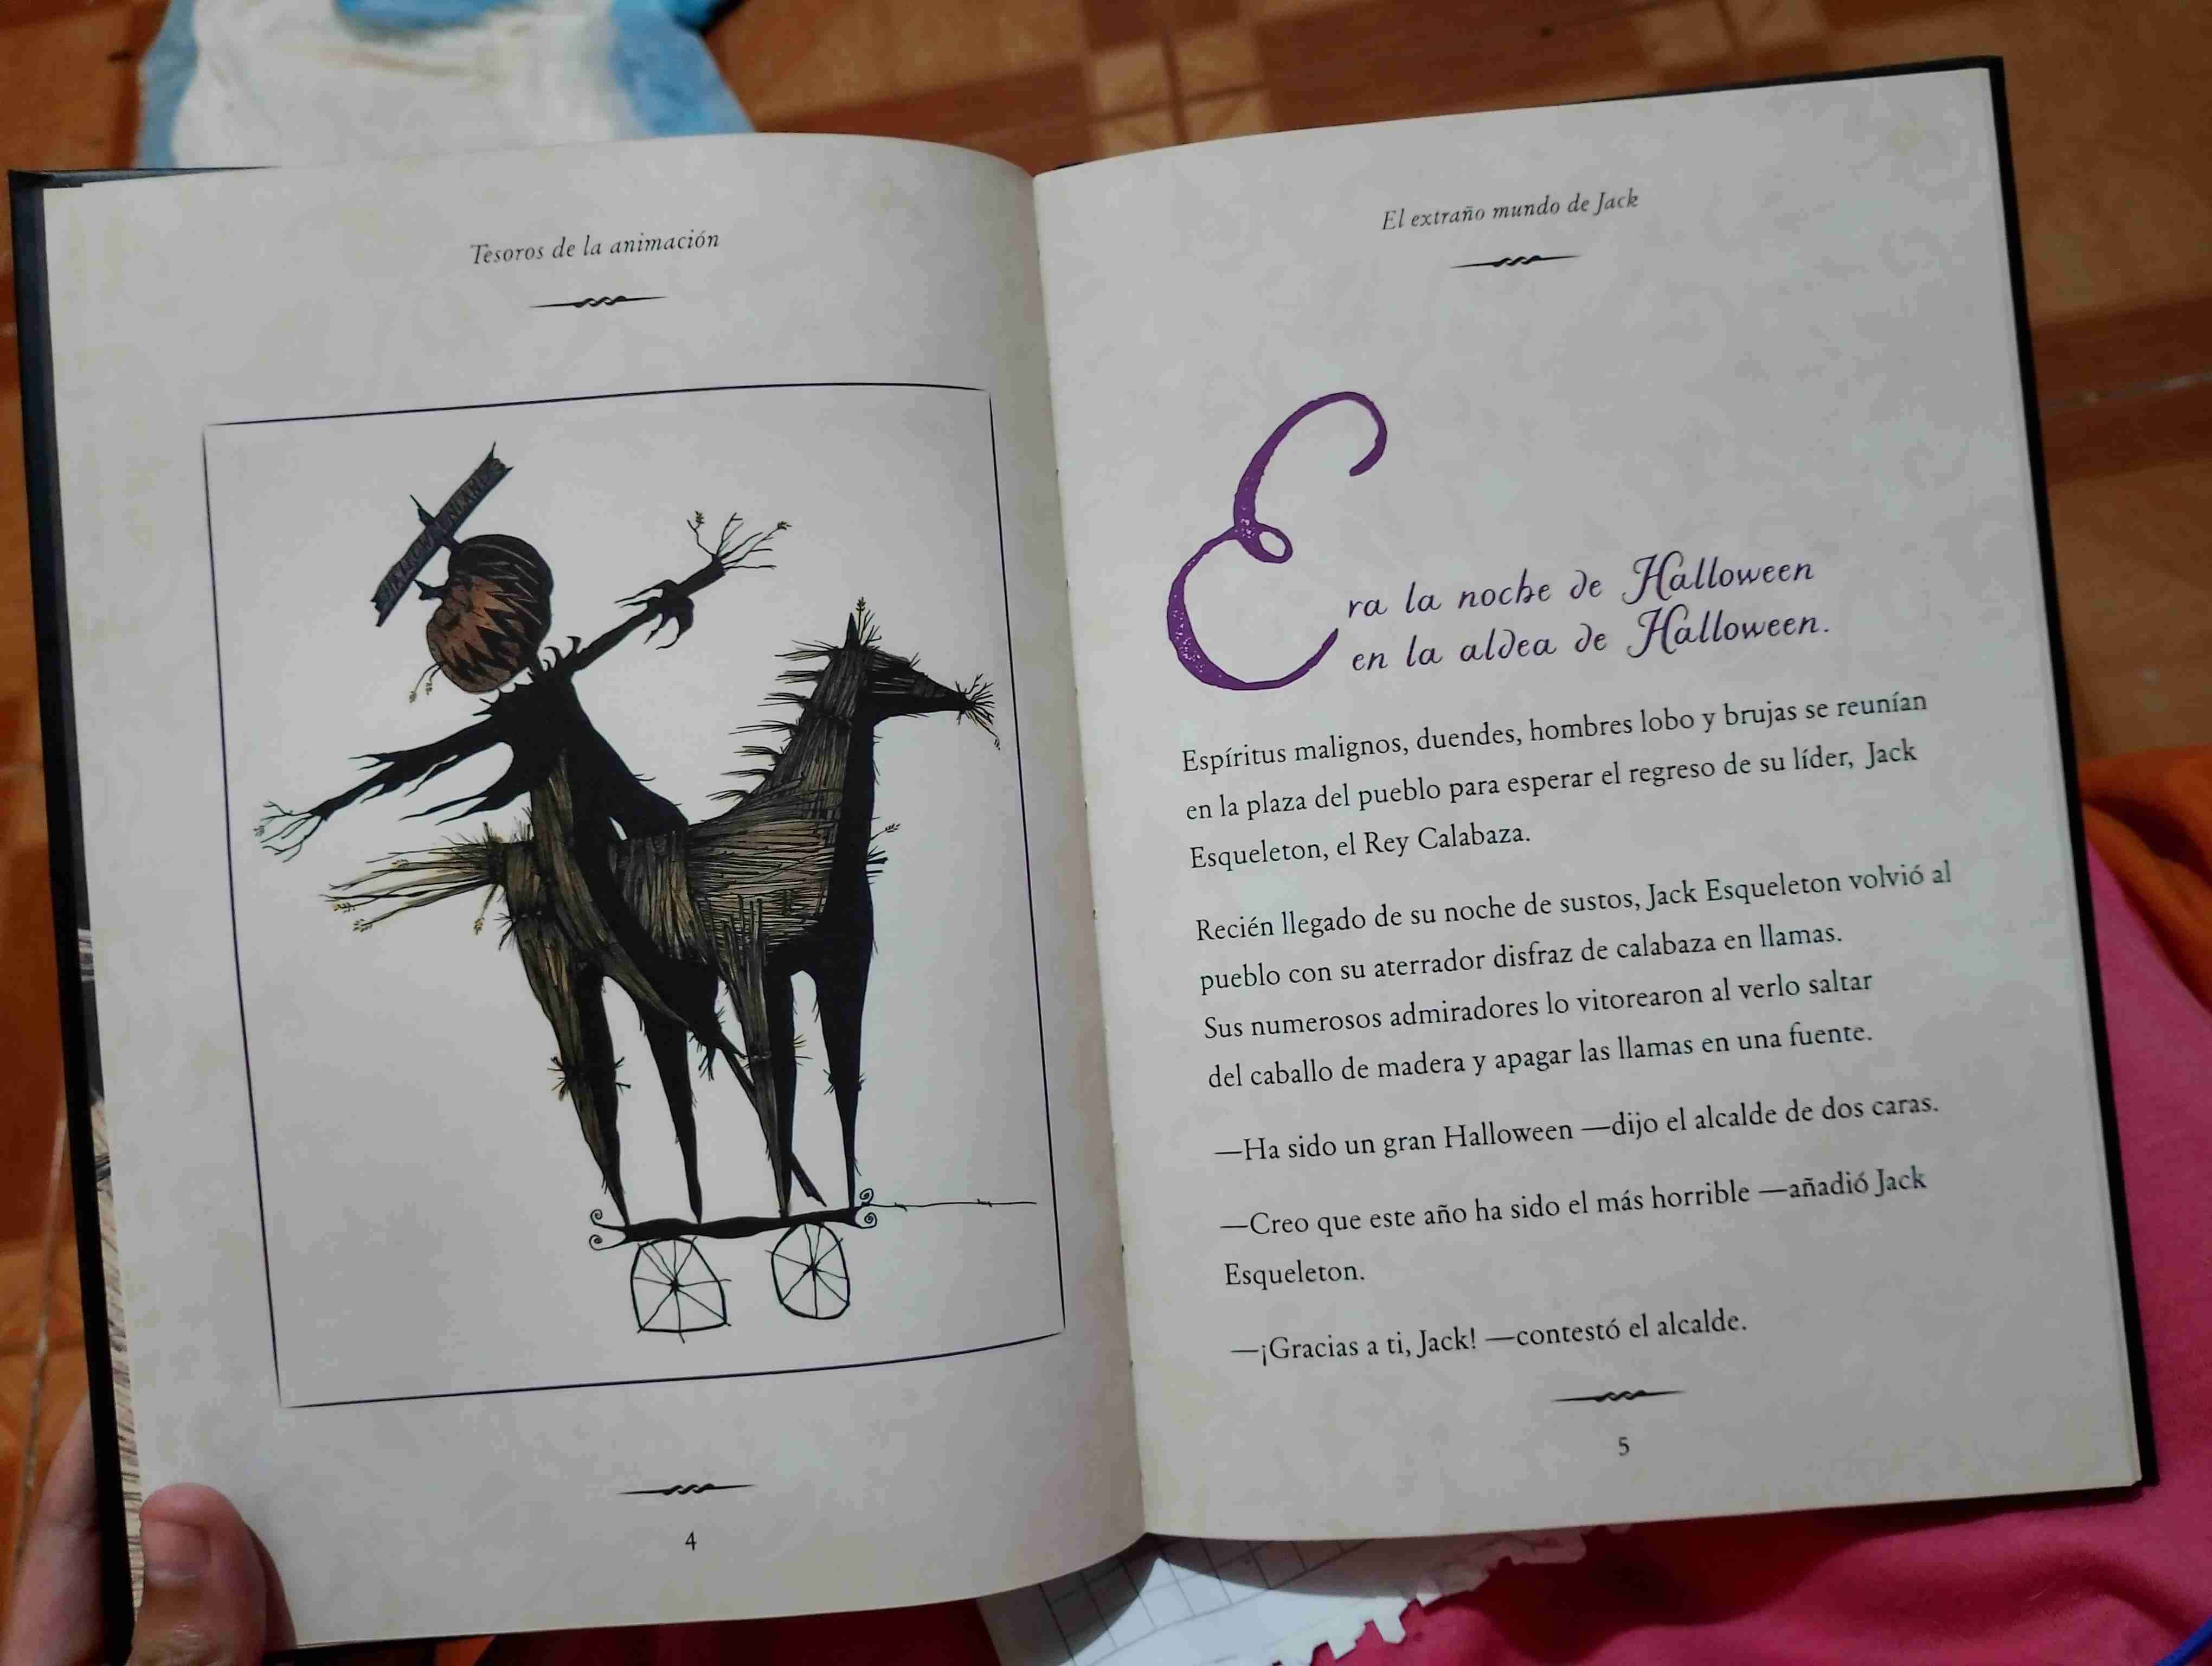 Tesoros de la animación
4
El extraño mundo de Jack
Era la noche de Halloween
en la aldea de Halloween.
Espíritus malignos, duendes, hombres lobo y brujas se reunían
en la plaza del pueblo para esperar el regreso de su líder, Jack
Esqueleton, el Rey Calabaza.
Recién llegado de su noche de sustos, Jack Esqueleton volvió al
pueblo con su aterrador disfraz de calabaza en llamas.
Sus numerosos admiradores lo vitorearon al verlo saltar
del caballo de madera y apagar las llamas en una fuente.
—Ha sido un gran Halloween —dijo el alcalde de dos caras.
—Creo que este año ha sido el más horrible —añadió Jack
Esqueleton.
—¡Gracias a ti, Jack! —contestó el alcalde.
5